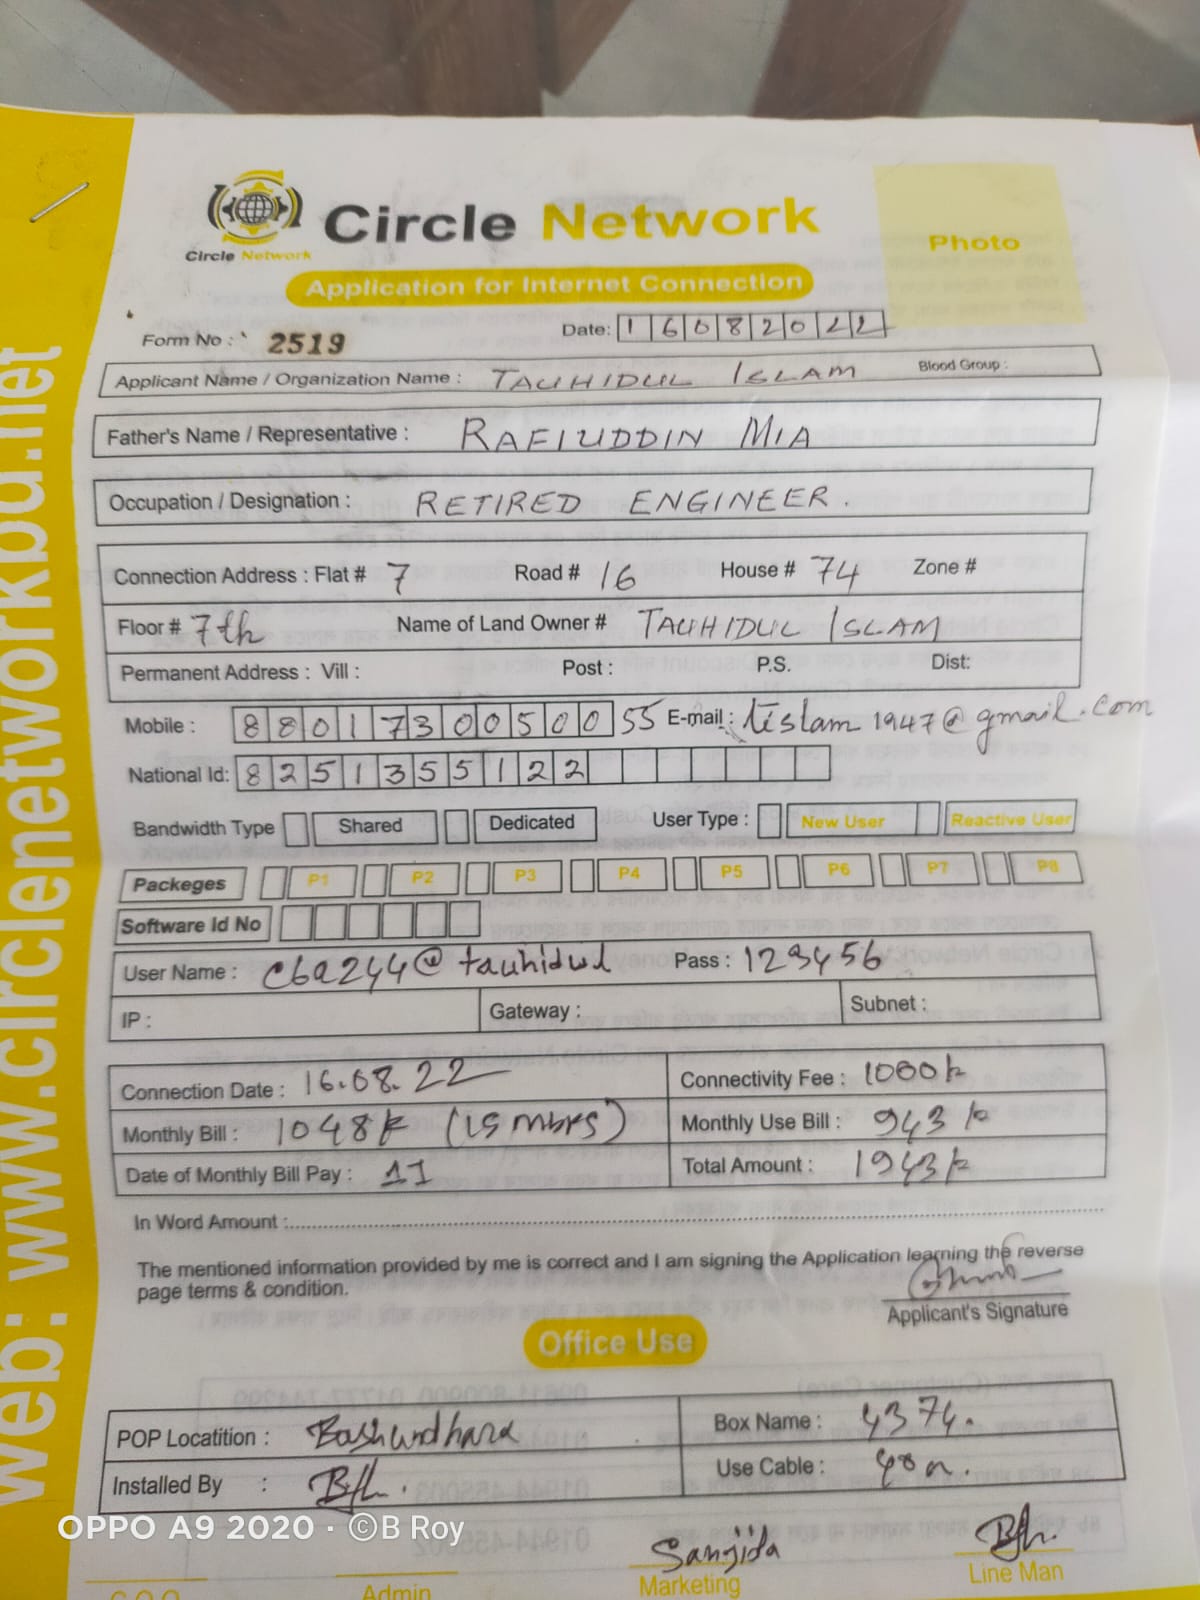 web: www.circlenetworkbd.net
Circle Network
Circle Network
Photo
Application for Internet Connection
Form No : 2519 Date: 16082022
Applicant Name / Organization Name : TAUHIDUL ISLAM Blood Group :
Father's Name / Representative : RAFIUDDIN MIA
Occupation / Designation : RETIRED ENGINEER.
Connection Address : Flat # 7 Road # 16 House # 74 Zone #
Floor # 7th Name of Land Owner # TAUHIDUL ISLAM
Permanent Address : Vill : Post : P.S. Dist:
Mobile : 8801730050055 E-mail : tislam1947@gmail.com
National Id: 8251355122
Bandwidth Type Shared Dedicated User Type : New User Reactive User
Packeges P1 P2 P3 P4 P5 P6 P7 P8
Software Id No
User Name : cba244@tauhidul Pass : 123456
IP : Gateway : Subnet :
Connection Date : 16.08.22 Connectivity Fee : 1000
Monthly Bill : 1048 (15 mbps) Monthly Use Bill : 943
Date of Monthly Bill Pay : 11 Total Amount : 1943
In Word Amount :
The mentioned information provided by me is correct and I am signing the Application learning the reverse
page terms & condition.
Applicant's Signature
Office Use
POP Locatition : Bashundhara Box Name : 4374.
Installed By : Use Cable :
Sanjida
C.O.O Admin Marketing Line Man
OPPO A9 2020 · ©B Roy